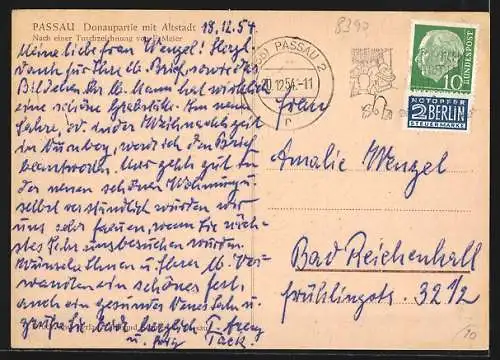 PASSAU Donaupartie mit Altstadt
Nach einer Tuschzeichnung von Meier
18.12.54
Meine liebe Frau Wenzel! Herzl.
Dank für Ihre lb. Brief, sowie das
Bildchen. Ihr lb. Mann hat wirklich
eine schöne Grabstätte. Im neuen
Jahre, in der Weihnachtszeit
in Nürnberg, werd ich den Brief
beantworten. Uns geht gut in
der neuen schönen Wohnung u.
selbstverständlich würden wir
uns sehr freuen, wenn Sie näch-
stes Jahr uns besuchen würden.
Wünsche Ihnen u. Ihrer lb. Ver-
wandten ein schönes Fest,
auch ein gesundes Neues Jahr u.
grüße Sie herzlich
u.
PASSAU 2
12.54.-11
8390
DEUTSCHE BUNDESPOST
10
NOTOPFER
2 BERLIN
STEUERMARKE
Frau
Amalie Wenzel
Bad Reichenhall
Frühlingstr. 32 1/2
/10